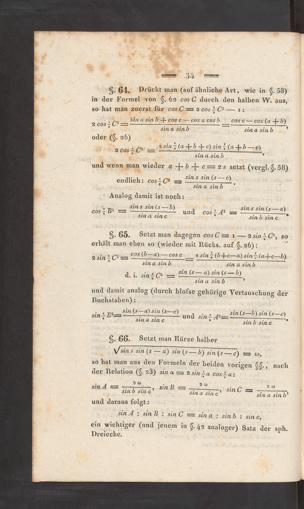 — 34 —
§. 64. Drückt man (auf ähnliche Art, wie in §. 58)
in der Formel von §. 62 cos C durch den halben W. aus,
so hat man zuerst für cos C = 2 cos ½ C² — 1:
2 cos ½ C² = (sin a sin b + cos c — cos a cos b)/(sin a sin b) = (cos c — cos (a + b))/(sin a sin b),
oder (§. 26)
2 cos ½ C² = (2 sin ½ (a + b + c) sin ½ (a + b — c))/(sin a sin b),
und wenn man wieder a + b + c = 2 s setzt (vergl. §. 58)
endlich: cos ½ C² = (sin s sin (s — c))/(sin a sin b),
Analog damit ist noch:
cos ½ B² = (sin s sin (s — b))/(sin a sin c) und cos ½ A² = (sin s sin (s — a))/(sin b sin c).
§. 65. Setzt man dagegen cos C = 1 — 2 sin ½ C², so
erhält man eben so (wieder mit Rücks. auf §. 26):
2 sin ½ C² = (cos (b — a) — cos c)/(sin a sin b) = (2 sin ½ (b + c — a) sin ½ (a + c — b))/(sin a sin b)
d. i. sin ½ C² = (sin (s — a) sin (s — b))/(sin a sin b),
und damit analog (durch blofse gehörige Vertauschung der
Buchstaben):
sin ½ B² = (sin (s — a) sin (s — c))/(sin a sin c) und sin ½ A² = (sin (s — b) sin (s — c))/(sin b sin c).
§. 66. Setzt man Kürze halber
√sin s sin (s — a) sin (s — b) sin (s — c) = ω,
so hat man aus den Formeln der beiden vorigen §§., nach
der Relation (§. 23) sin a = 2 sin ½ a cos ½ a:
sin A = (2 ω)/(sin b sin c), sin B = (2 ω)/(sin a sin c), sin C = (2 ω)/(sin a sin b),
und daraus folgt:
sin A : sin B : sin C = sin a : sin b : sin c,
ein wichtiger (und jenem in §. 42 analoger) Satz der sph.
Dreiecke.